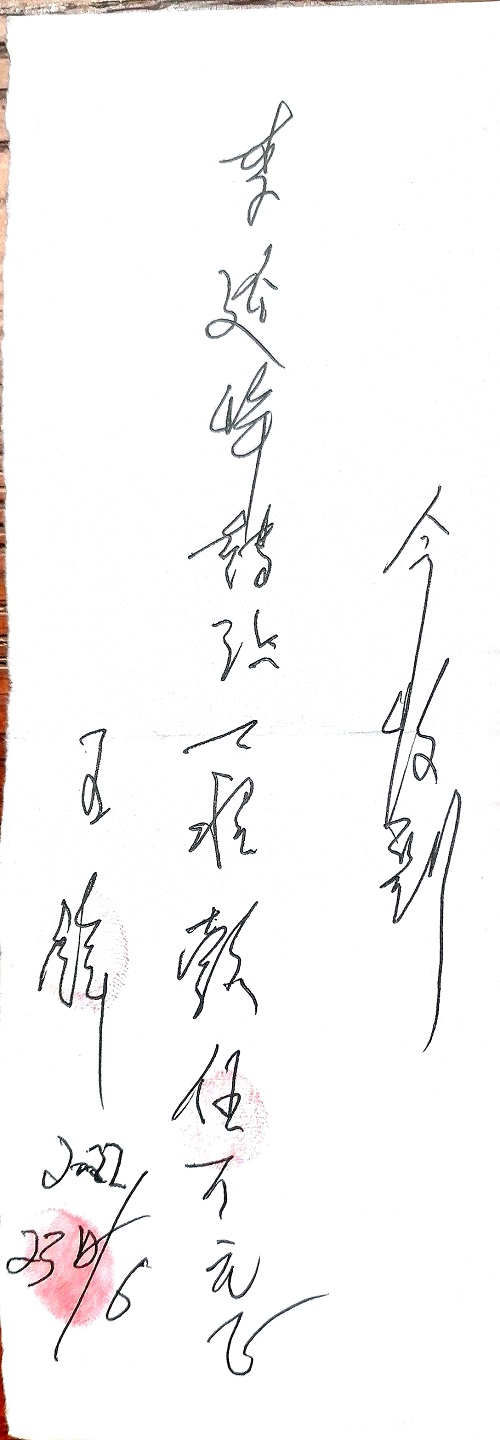 今收到
李廷峰转珍工程款伍万元正
王锋
2022/6
23日